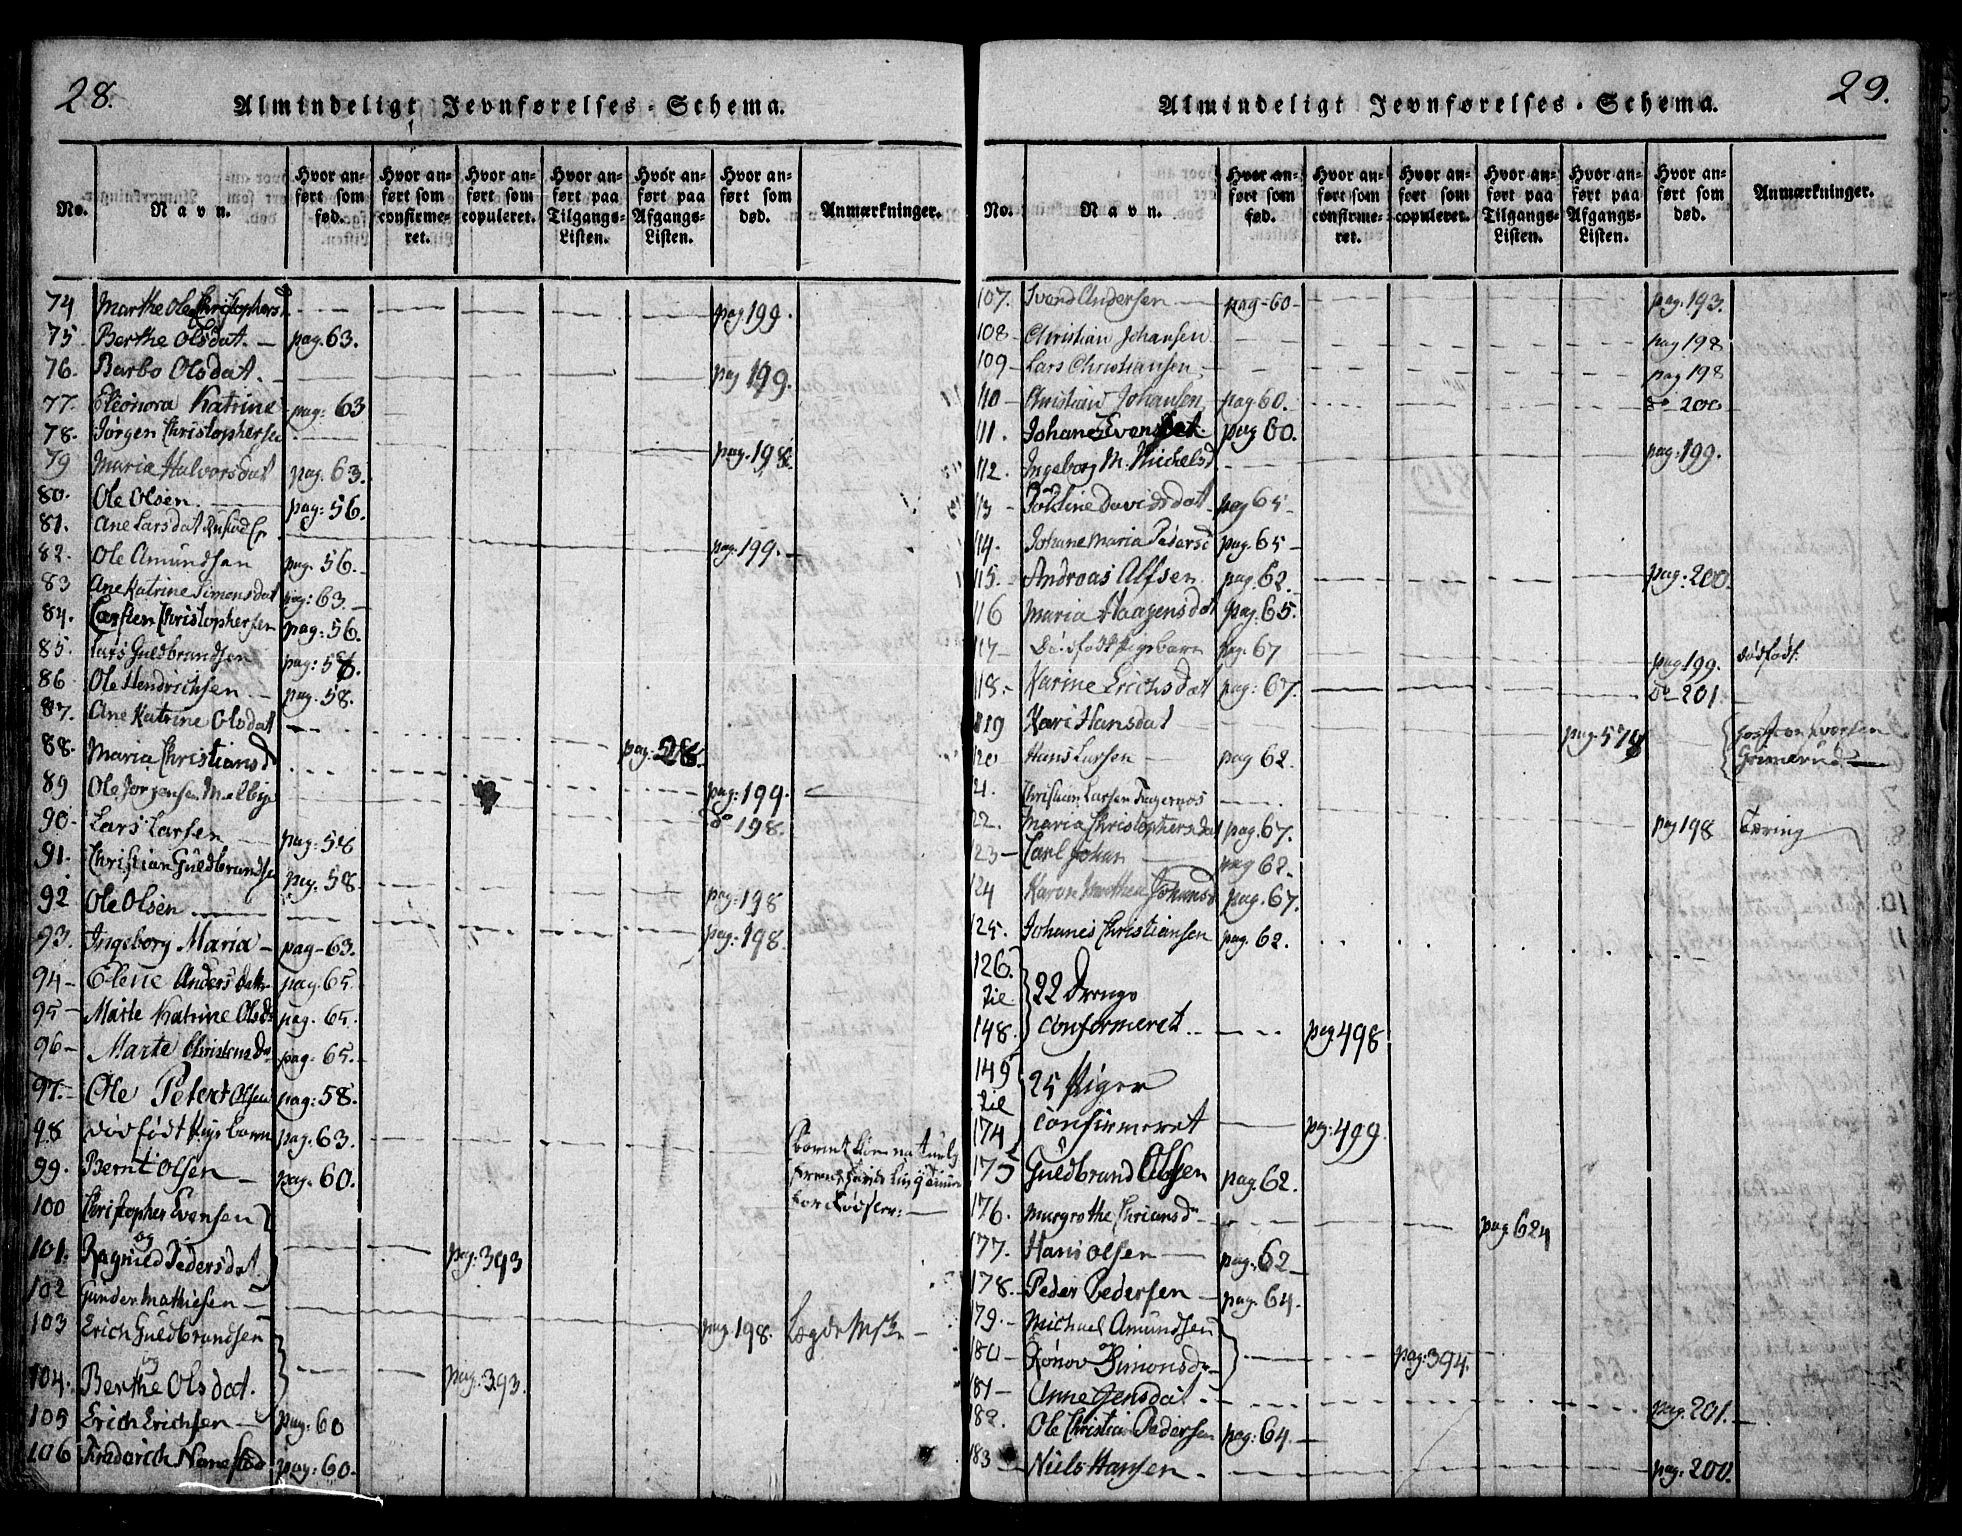 28.
Almindeligt Jevnførelses-Schema.
No.
Navn.
Hvor anført som fød.
Hvor anført som confirmeret.
Hvor anført som copuleret.
Hvor anført paa Tilgangs-Listen.
Hvor anført paa Afgangs-Listen.
Hvor anført som død.
Anmærkninger.
74 Marthe Ole Christophersd pag 199.
75. Berthe Olsdat. pag. 63.
76. Barbo Olsdat. pag 199.
77. Eleonora Katrine pag: 63
78. Jørgen Christophersen pag. 198.
79 Maria Halvorsdat pag. 63.
80. Ole Olsen pag: 56.
81. Ane Larsdat pag. 199.
82. Ole Amundsen pag. 56.
83 Ane Katrine Simensdat pag: 63.
84. Carsten Christophersen pag: 56.
85. Lars Guldbrandsen pag: 58.
86 Ole Hendrichsen pag. 58.
87. Ane Katrine Olsdat
88. Maria Christiansd pag:
89 Ole Jørgensen Melbye pag: 199.
90. Lars Larsen pag: 58 do 198.
91. Christian Guldbrandse pag. 58.
92 Ole Olsen pag: 198
93. Ingeborg Maria pag-63. pag: 198.
94- Elene Andersdatter pag. 65.
95 Marte Katrine Olsd pag. 65.
96- Marte Christensd pag- 65.
97. Ole Petert Olsen pag: 58.
98 dødfødt Pigebarn pag. 63.
99. Bernt Olsen pag. 60.
100 Christopher Evensen
og
101. Ragnild Pedersdat pag. 393
102 Gunder Mathiesen pag. 198.
103 Erich Guldbrandsen
og
104. Berthe Olsdat. pag. 393.
105 Erich Erichsen pag: 60
106 Frederich pag: 60.
29.
Almindeligt Jevnførelses-Schema.
No.
Navn.
Hvor anført som fød.
Hvor anført som confirmeret.
Hvor anført som copuleret.
Hvor anført paa Tilgangs-Listen.
Hvor anført paa Afgangs-Listen.
Hvor anført som død.
Anmærkninger.
107. Svend Andersen pag-60- pag. 193.
108 Christian Johansen pag 198
109 Lars Christiansen pag 198
110 Christian Johansen pag 60. do 200
111. Johane Evensdat. pag 60.
112. Ingeborg M. Mickelsd pag: 199.
113 Davidsdat pag 65-
114. Johane Maria Peders pag. 65-
115. Andreas Alfsen pag. 62. pag: 200
116 Maria Haagensdat pag. 65.
117 Dødfødt Pigebarn pag. 67 pag 199. Dødfødt.
118. Karine Erichsdat pag: 67. do 201.
119 Kari Hansdat pag. 578
120 Hans Larsen pag 62.
21. Christian Larsen Fagernos
22. Maria Christophersdat pag. 67. pag 198 Tæring
23 Carl Johan pag 62.
124 Karen Dorthea Johansd pag. 67.
125. Johanes Christiansen pag. 62.
126.
til 22 Drenge
148. conformeret. pag. 498
149 25 Piger
til
174 confirmeret pag. 499
175 Guldbrand Olsen pag. 62.
176. Margrethe pag. 624
177. Hans Olsen pag. 62
178. Peder Pedersen pag. 64.
179. Michael Amundsen
og
180 Rønov Simonsd pag: 394.
181 Anne Jensdat pag. 201.
82. Ole Christian Pedersen pag: 64
183 Niels Hansen. pag. 200.